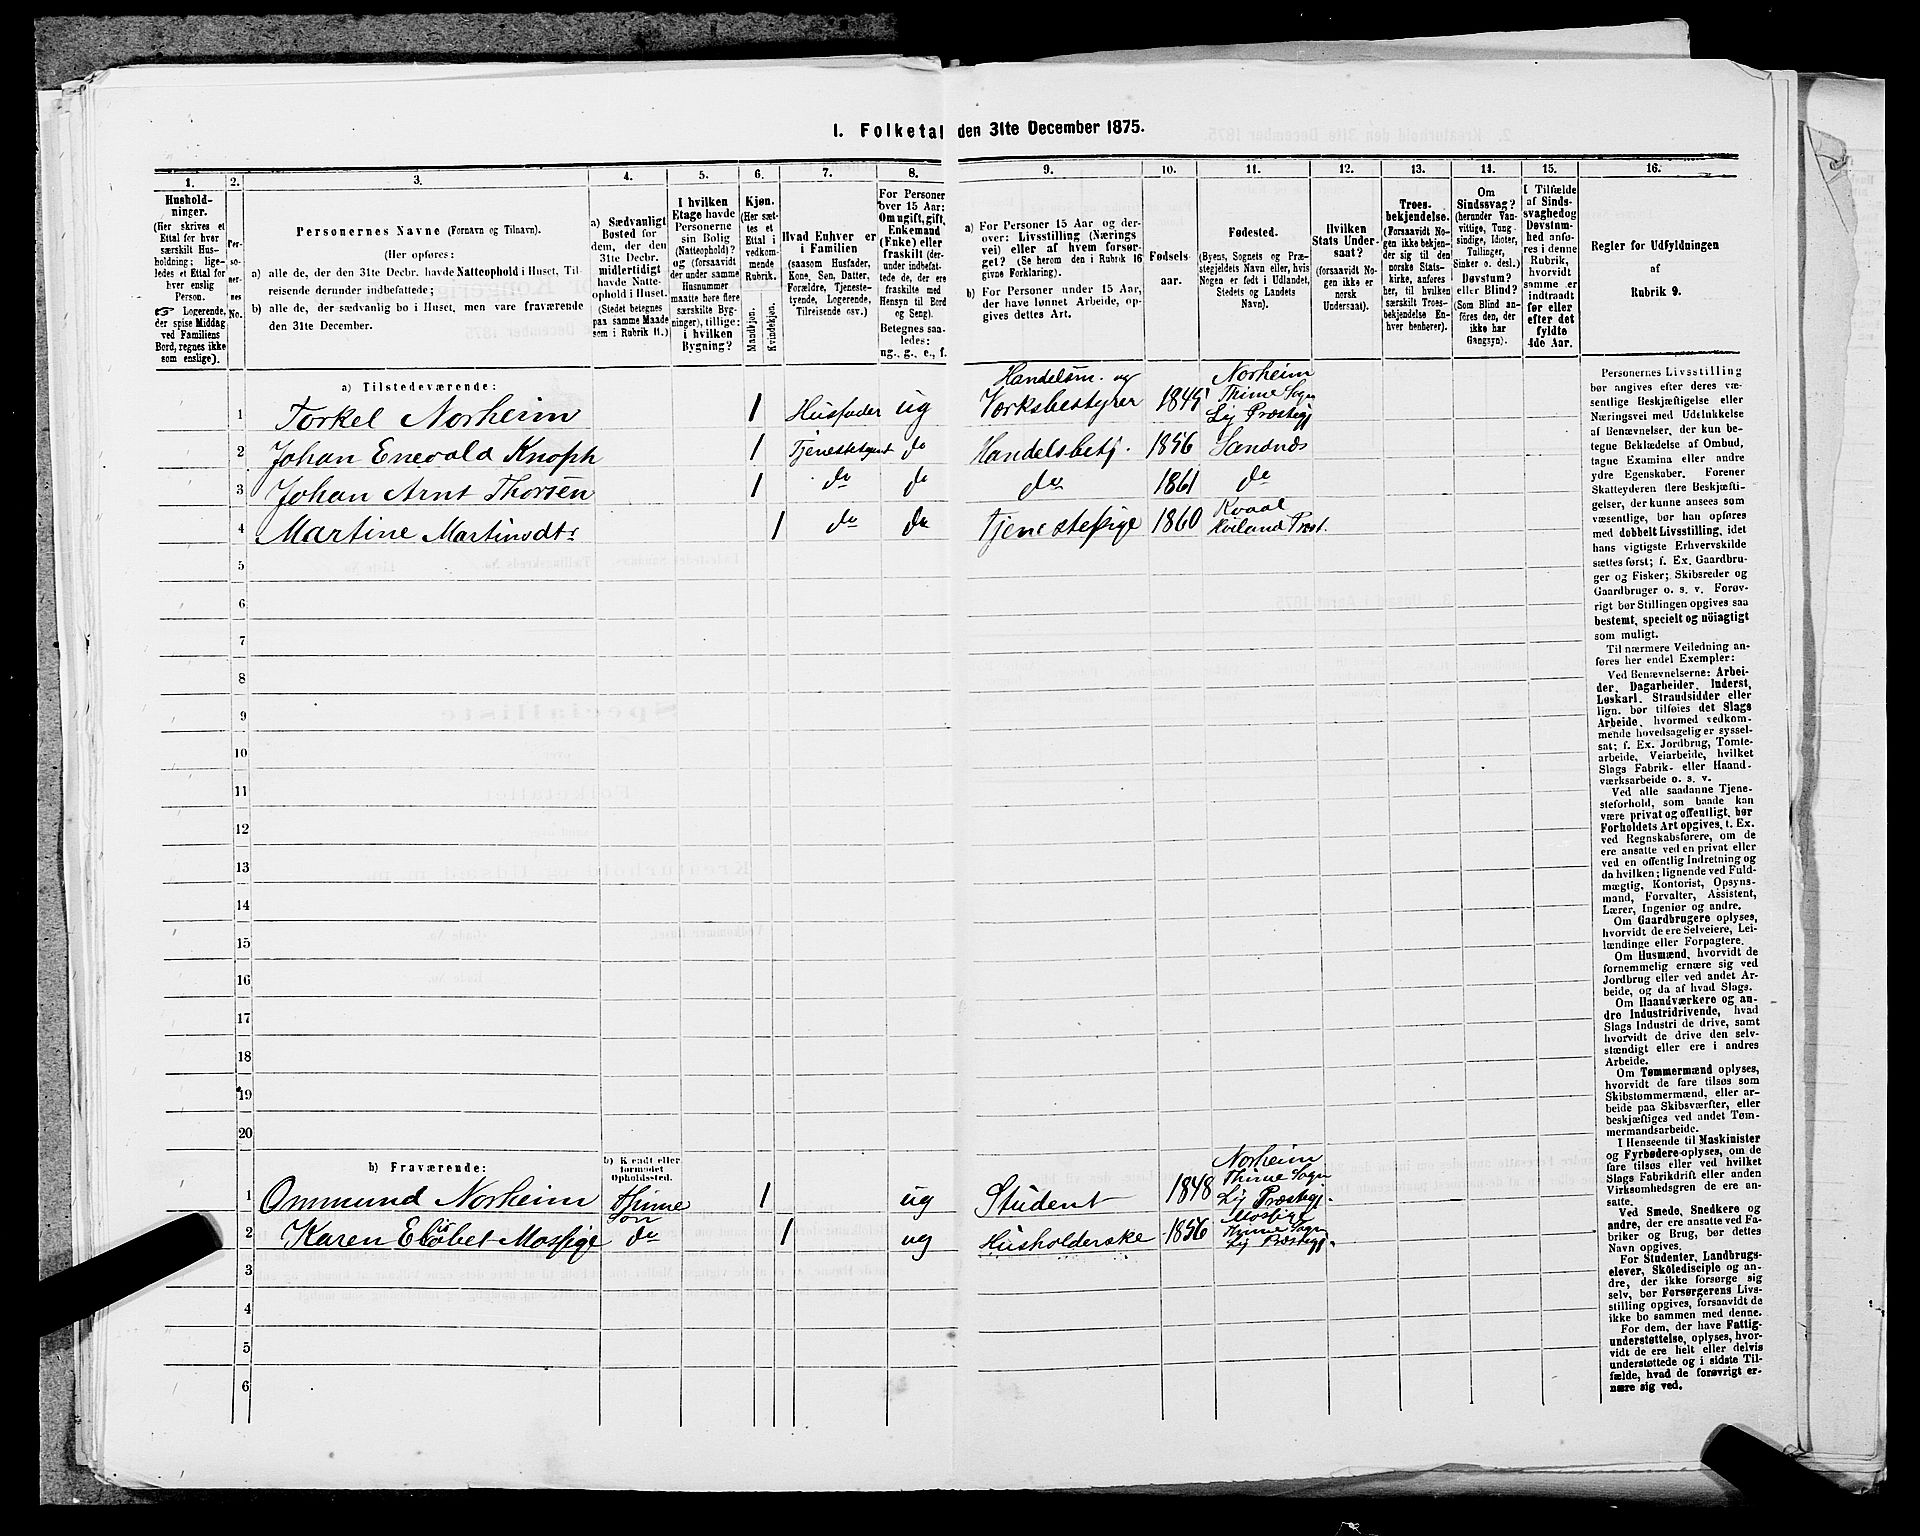 I. Folketal den 31te December 1875.
1. 2. 3. 4. 5. 6. 7. 8. 9. 10. 11. 12. 13. 14. 15. 16.
Hushold-
ninger.
(Her skrives et
Ettal for hver
særskilt Hus-
holdning; lige-
ledes et Ettal for
hver enslig
Person.
☞ Logerende,
der spise Middag
ved Familiens
Bord, regnes ikke
som enslige).
Per-
so-
ner-
nes
No.
Personernes Navne (Fornavn og Tilnavn).
(Her opføres:
a) alle de, der den 31te Decbr. havde Natteophold i Huset, Til-
reisende derunder indbefattede;
b) alle de, der sædvanlig bo i Huset, men vare fraværende
den 31te December.
a) Sædvanligt
Bosted for
dem, der den
31te Decbr.
midlertidigt
havde Natte-
ophold i Huset.
(Stedet betegnes
paa samme Maade
som i Rubrik 11.)
I hvilken
Etage havde
Personerne
sin Bolig
(Natteophold)?
og (forsaavidt
der under samme
Husnummer
maatte høre flere
særskilte Byg-
ninger), tillige:
i hvilken
Bygning?
Kjøn.
(Her sæt-
tes et
Ettal i
vedkom-
mende
Rubrik.
Mandkjøn.
Kvindekjøn.
Hvad Enhver er
i Familien
(saasom Husfader,
Kone, Søn, Datter,
Forældre, Tjeneste-
tyende, Logerende,
Tilreisende osv.)
For Personer
over 15 Aar:
Om ugift, gift,
Enkemand
(Enke) eller
fraskilt (der-
under indbefat-
tede de, der ere
fraskilte med
Hensyn til Bord
og Seng).
Betegnes saa-
ledes:
ug., g., e., f.
a) For Personer 15 Aar og der-
over: Livsstilling (Nærings
vei) eller af hvem forsør-
get? (Se herom den i Rubrik 16
givne Forklaring).
b) For Personer under 15 Aar,
der have lønnet Arbeide, op-
gives dettes Art.
Fødsels-
aar.
Fødested.
(Byens, Sognets og Præ-
stegjeldets Navn eller, hvis
Nogen er født i Udlandet,
Stedets og Landets
Navn).
Hvilken
Stats Under-
saat?
(forsaavidt No-
gen ikke er
norsk
Undersaat).
Troes-
bekjendelse.
(Forsaavidt No-
gen ikke bekjen-
der sig til den
norske Stats-
kirke, anføres
her, til hvilken
særskilt Troes-
bekjendelse En-
hver henhører).
Om
Sindssvag?
(herunder Van-
vittige, Tung-
sindige, Idioter,
Tullinger,
Sinker o. desl.)
Døvstum?
eller Blind?
(Som Blind an-
føres den, der
ikke har
Gangsyn).
I Tilfælde
af Sinds-
svaghed og
Døvstum-
hed anfø-
res i denne
Rubrik,
hvorvidt
samme er
indtraadt
før eller
efter det
fyldte
4de Aar.
Regler for Udfyldningen
af
Rubrik 9.
a) Tilstedeværende:
1 Torkel Norheim 1 Husfader ug Handelsm. og Værksbestyrer 1845 Norheim Thime Sogn Ly Præstegj
2 Johan Enevald Knoph 1 Tjenestetyent do Handelsbetj. 1856 Sandnæs
3 Johan Arnt Thorsen 1 do do do 1861 do
4 Martine Martinsdtr 1 do do Tjenestepige 1860 Kvaal Præst.
5
6
7
8
9
10
11
12
13
14
15
16
17
18
19
20
b) Fraværende:
b) Kjendt eller
formodet
Opholdssted.
1 Ommund Norheim Thime Son 1 ug Student 1848 Norheim Thime Sogn Ly Præstegj.
2 Karen Elisbet Mossige do 1 ug Husholderske 1856 Mossige Thime Sogn Ly Præstegj.
3
4
5
6
Personernes Livsstilling
bør angives efter deres væ-
sentlige Beskjæftigelse eller
Næringsvei med Udelukkelse
af Benævnelser, der kun be-
tegne Beklædelse af Ombud,
tagne Examina eller andre
ydre Egenskaber. Forener
Skatteyderen flere Beskjæfti-
gelser, der kunne ansees som
væsentlige, bør han opføres
med dobbelt Livsstilling, idet
hans vigtigste Erhvervskilde
sættes først; f. Ex. Gaardbru-
ger og Fisker; Skibsreder og
Gaardbruger o. s. v. Forøv-
rigt bør Stillingen opgives saa
bestemt, specielt og nöiagtigt
som muligt.
Til nærmere Veiledning an-
føres her endel Exempler:
Ved Benævnelserne: Arbei-
der, Dagarbeider, Inderst,
Løskarl, Strandsidder eller
lign. bør tilføies det Slags
Arbeide, hvormed vedkom-
mende hovedsagelig er syssel-
sat; f. Ex. Jordbrug, Tomte-
arbeide, Veiarbeide, hvilket
Slags Fabrik- eller Haand-
værksarbeide o. s. v.
Ved alle saadanne Tjene-
steforhold, som baade kan
være privat og offentligt, bør
Forholdets Art opgives, t. Ex.
ved Regnskabsførere, om de
ere ansatte ved en privat eller
ved en offentlig Indretning og
da hvilken; lignende ved Fuld-
mægtig, Kontorist, Opsyns-
mand, Forvalter, Assistent,
Lærer, Ingeniør og andre.
Om Gaardbrugere oplyses,
hvorvidt de ere Selveiere, Lei-
lændinge eller Forpagtere.
Om Husmænd, hvorvidt de
fornemmelig ernære sig ved
Jordbrug eller ved andet Ar-
beide, og da af hvad Slags.
Om Haandværkere og an-
dre Industridrivende, hvad
Slags Industri de drive, samt
hvorvidt de drive den selv-
stændigt eller ere i andres
Arbeide.
Om Tømmermænd oplyses,
hvorvidt de fare tilsøs som
Skibstømmermænd, eller ar-
beide paa Skibsværfter, eller
beskjæftiges ved andet Tøm-
mermandsarbeide.
I Henseende til Maskinister
og Fyrbødere oplyses, om de
fare tilsøs eller ved hvilket
Slags Fabrikdrift eller anden
Virksomhedsgren de ere an-
satte.
Ved Smede, Snedkere og
andre, der ere ansatte ved Fa-
briker og Brug, bør dettes
Navn opgives.
For Studenter, Landbrugs-
elever, Skoledisciple og an-
dre, der ikke forsørge sig
selv, bør Forsørgerens Livs-
stilling opgives, forsaavidt de
ikke bo sammen med denne.
For dem, der have Fattig-
understøttelse, oplyses, hvor-
vidt de ere helt eller delvis
understøttede og i sidste Til-
fælde, hvad de forøvrigt er-
nære sig ved.